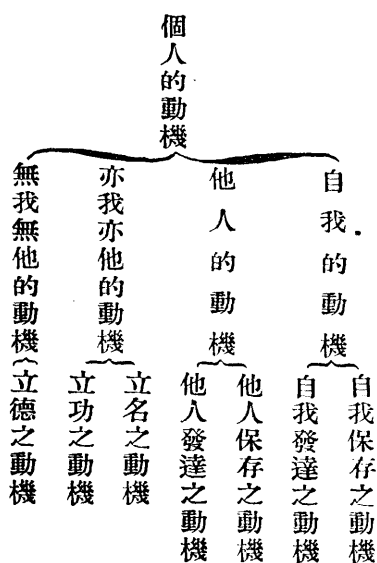 個人的動機
自我的動機
自我保存之動機
自我發達之動機
他人的動機
他人保存之動機
他人發達之動機
亦我亦他的動機
立名之動機
立功之動機
無我無他的動機
立德之動機